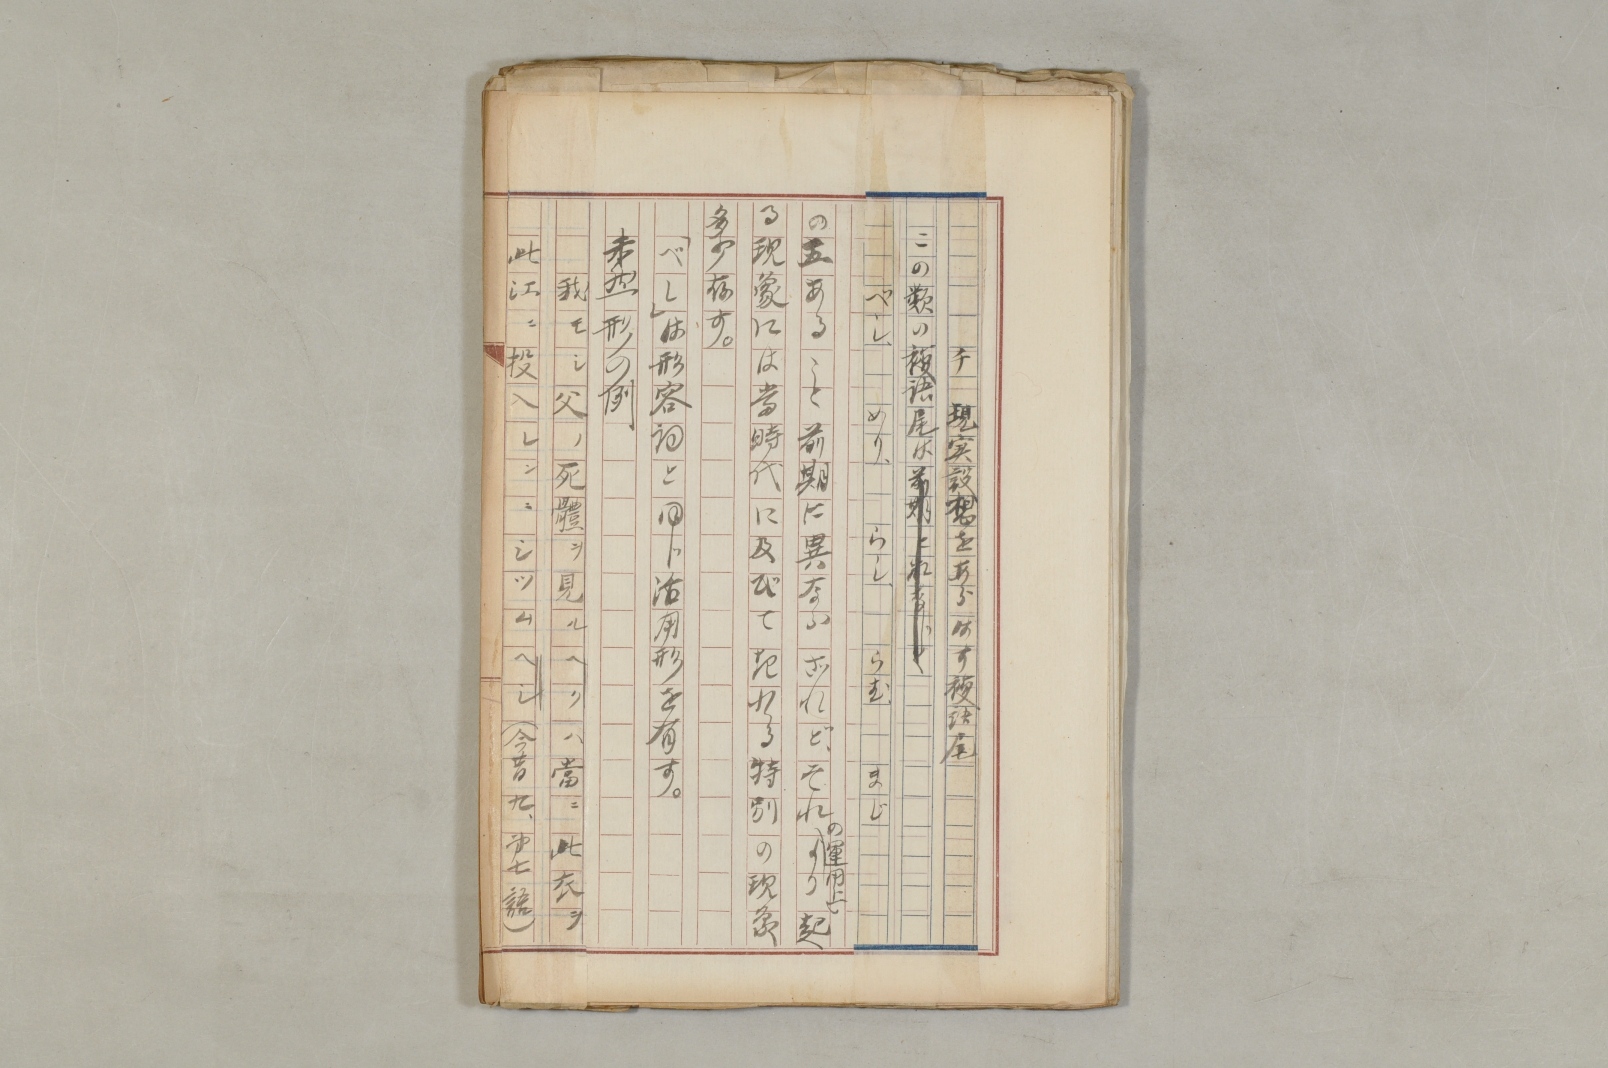 チ　現実設想をあらはす複語尾
この類の複語尾は前期と格ちがく
べし、　めり、　らし、　らむ　まじ
の五あること前期に異ならざれど、それの運用上より起
る現象には當時代に及びて起れる特別の現象
多少存す。
「べし」は形容詞と同じ活用形を有す。
未然形の例
我モシ父ノ死體ヲ見ルヘクハ當ニ此衣ヲ
此江ニ投入レンニシツムヘシ（今昔九、第七語）